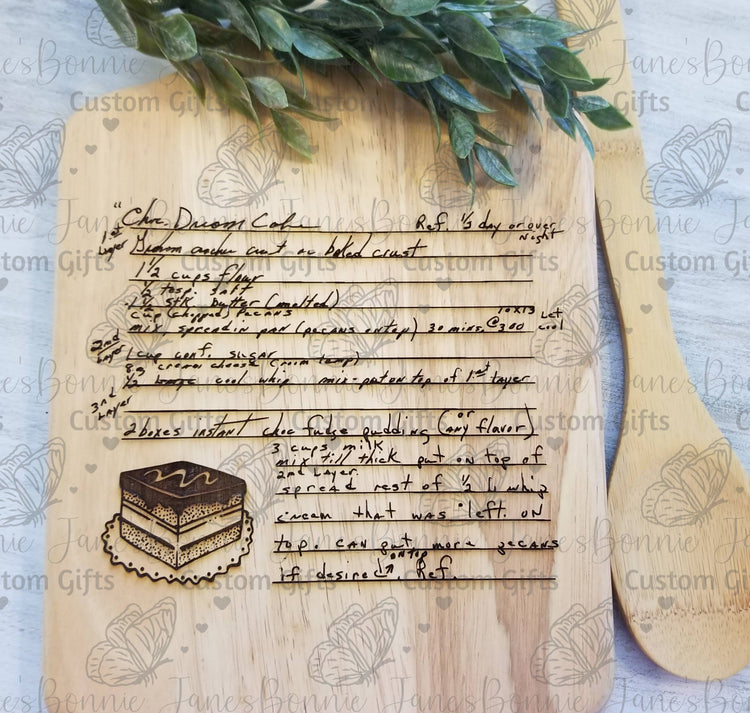 "Choc. Dream Cake Ref. 1/2 day or over night
1st Layer Graham cracker crust or baked crust
1 1/2 cups flour
1/2 tesp. salt
1 1/2 stk butter (melted)
cup (chopped) pecans 10x13 Let
mix, spread in pan (pecans on top) 30 mins. @ 300 cool
2nd Layer 1 cup conf. sugar
8 oz cream cheese (room temp)
1/2 large cool whip mix - put on top of 1st layer
3rd Layer
2 boxes instant choc fudge pudding (or any flavor)
3 cups milk
mix till thick put on top of
2nd Layer.
spread rest of 1/2 whip
cream that was left. on
top. can put more pecans
on top
if desired. Ref.
Jane'sBonnie
Custom Gifts